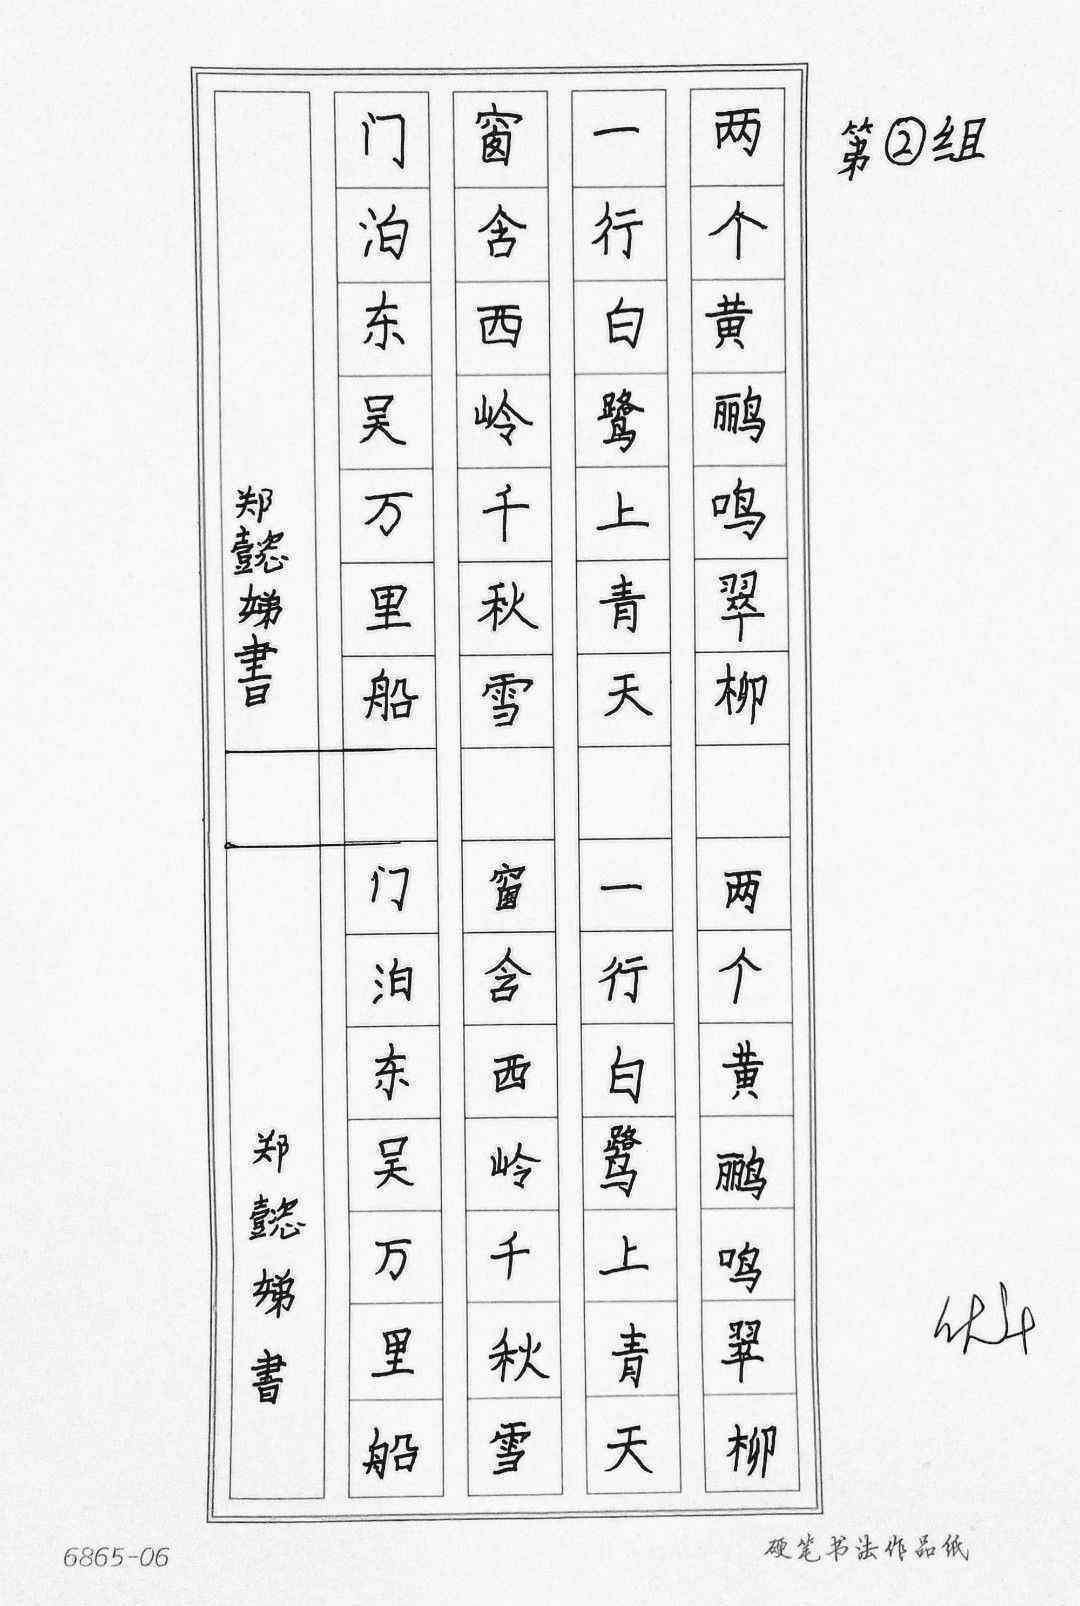 第②组
两个黄鹂鸣翠柳
一行白鹭上青天
窗含西岭千秋雪
门泊东吴万里船
郑懿娣書
两个黄鹂鸣翠柳
一行白鹭上青天
窗含西岭千秋雪
门泊东吴万里船
郑懿娣書
6865-06
硬笔书法作品纸